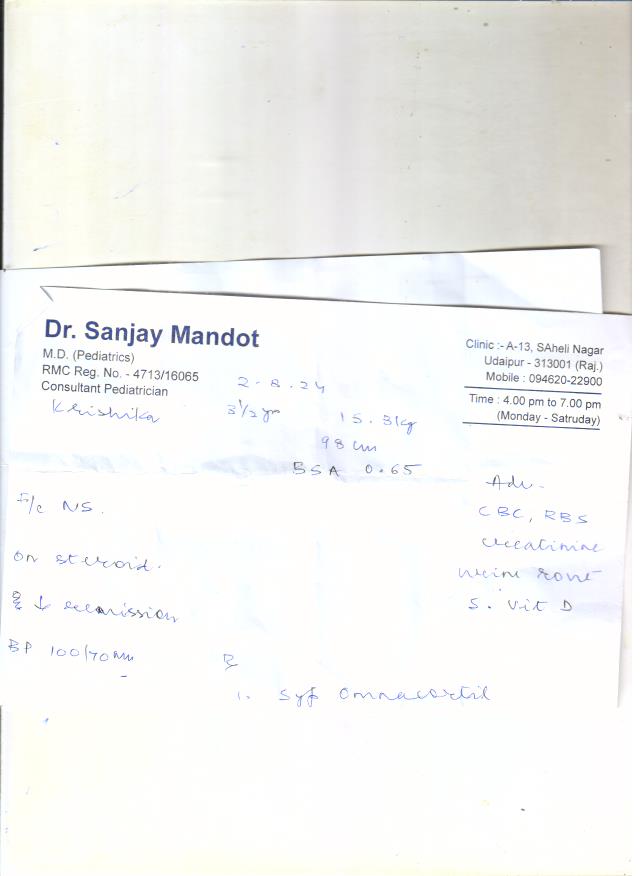 Dr. Sanjay Mandot
M.D. (Pediatrics)
RMC Reg. No. - 4713/16065
Consultant Pediatrician
Clinic :- A-13, SAheli Nagar
Udaipur - 313001 (Raj.)
Mobile : 094620-22900
Time : 4.00 pm to 7.00 pm
(Monday - Satruday)
2-8.24
Krishika 3½ yr 15.3kg
98 cm
BSA 0.65
Adv.
CBC, RBS
creatinine
urine rout
S. Vit D
F/c NS.
on steroid.
↓ remission
BP 100/70 mm
Rx
1. Syp Omnacortil